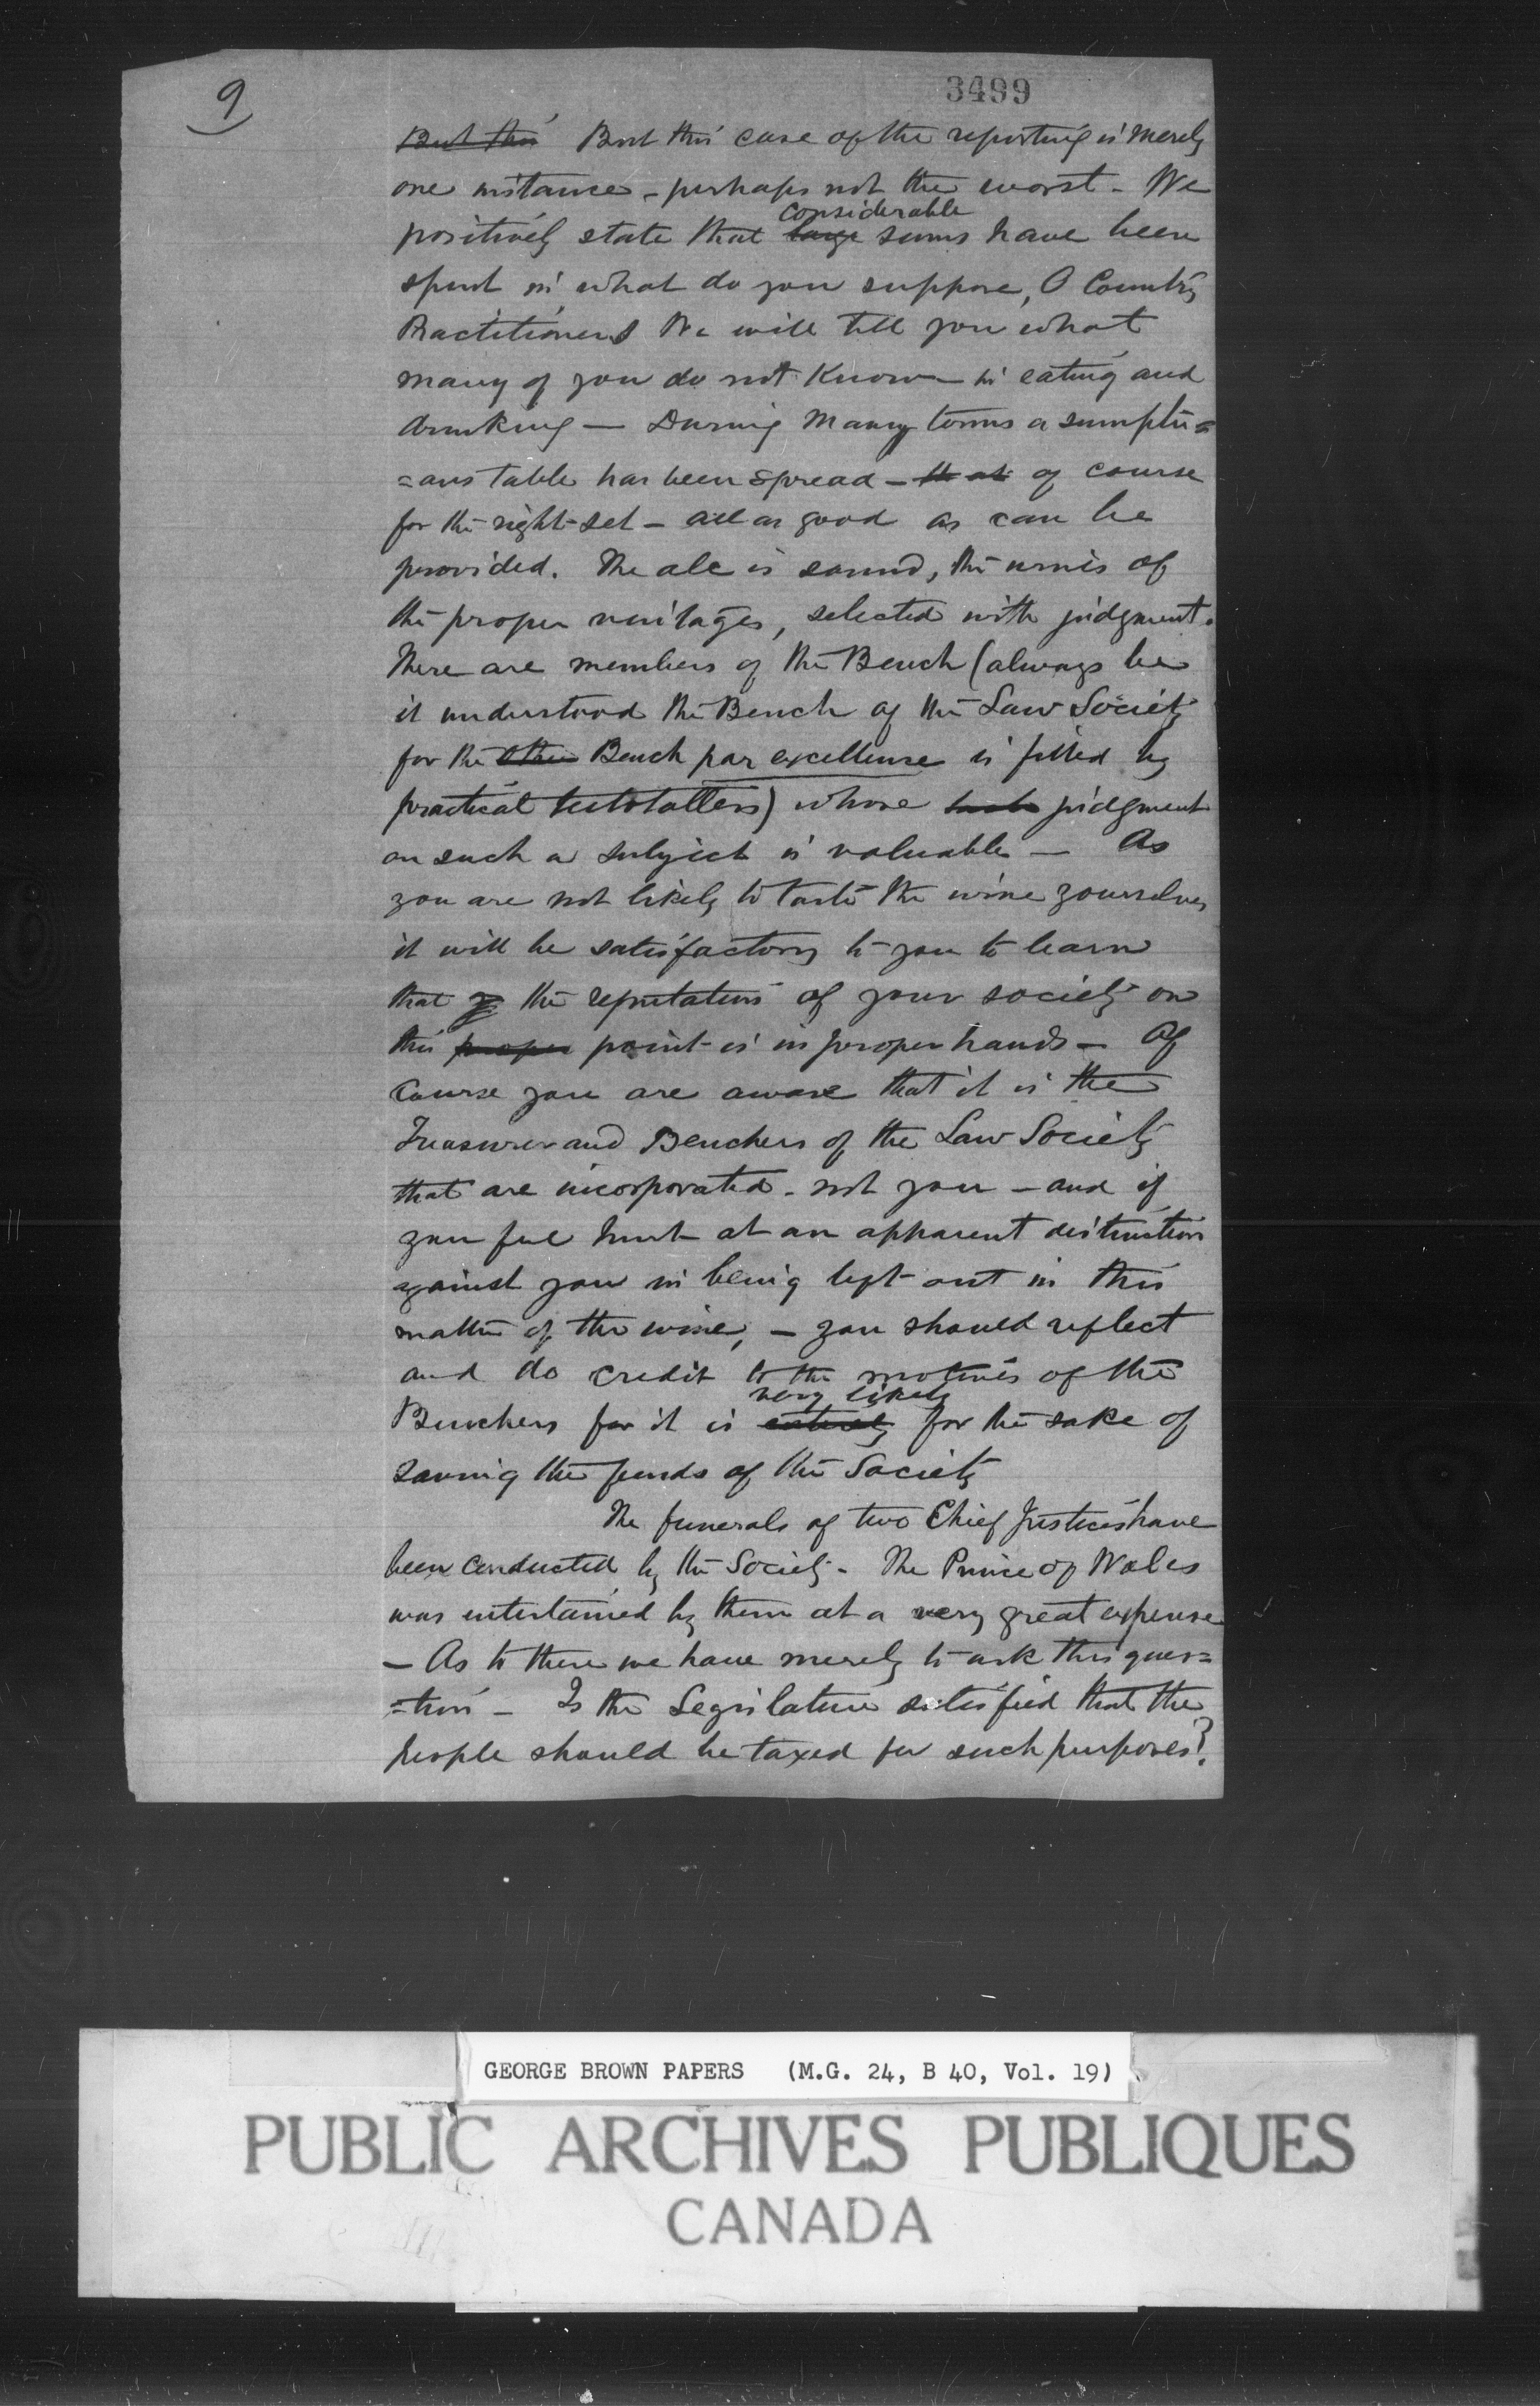 9
3499
But this But this case of the reporting is merely
one instance - perhaps not the worst - We
considerable
positively state that large sums have been
spent in what do you suppose, O Country
Practitioners We will tell you what
many of you do not know - in eating and
drinking — During many terms a sumptu=
=ous table has been spread - that of course
for the right set - all as good as can be
provided. The ale is sound, the wines of
the proper vintages, selected with judgment.
There are members of the Bench (always be
it understood the Bench of the Law Society
for the other Bench par excellence is filled by
practical teetotallers) whose judgment
on such a subject is valuable — As
you are not likely to taste the wine yourselves
it will be satisfactory to you to learn
that the reputation of your society on
this proper point is in proper hands — Of
course you are aware that it is the
Treasurer and Benchers of the Law Society
that are incorporated - not you - and if
you feel hurt at an apparent distinction
against you in being left out in this
matter of the wine, - you should reflect
and do credit to the motives of the
very likely
Benchers for it is entirely for the sake of
saving the funds of the Society
The funerals of two Chief Justices have
been conducted by the Society - The Prince of Wales
was entertained by them at a very great expense
- As to these we have merely to ask this ques=
=tion - Is the Legislature satisfied that the
people should be taxed for such purposes?
GEORGE BROWN PAPERS (M.G. 24, B 40, Vol. 19)
PUBLIC ARCHIVES PUBLIQUES
CANADA